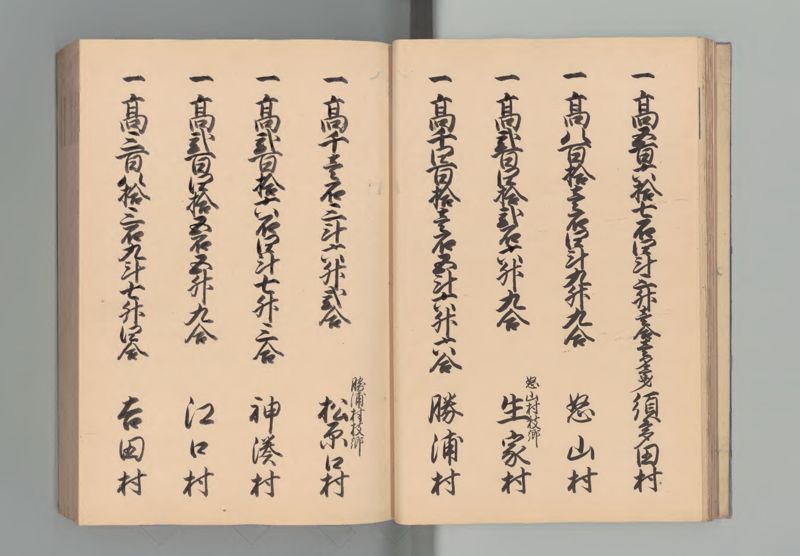 一高五百八拾七石四斗六升壱合
須多田村
一高八百拾三石四斗九升九合
怒山村
一高弐百四拾弐石六升九合
怒山村枝郷
生家村
一高千四百拾壱石五斗六升六合
勝浦村
一高千壱石二斗六升弐合
勝浦村枝郷
松原口村
一高弐百拾六石四斗七升三合
神湊村
一高弐百四拾五石五升九合
江口村
一高三百八拾三石九斗七升四合
吉田村